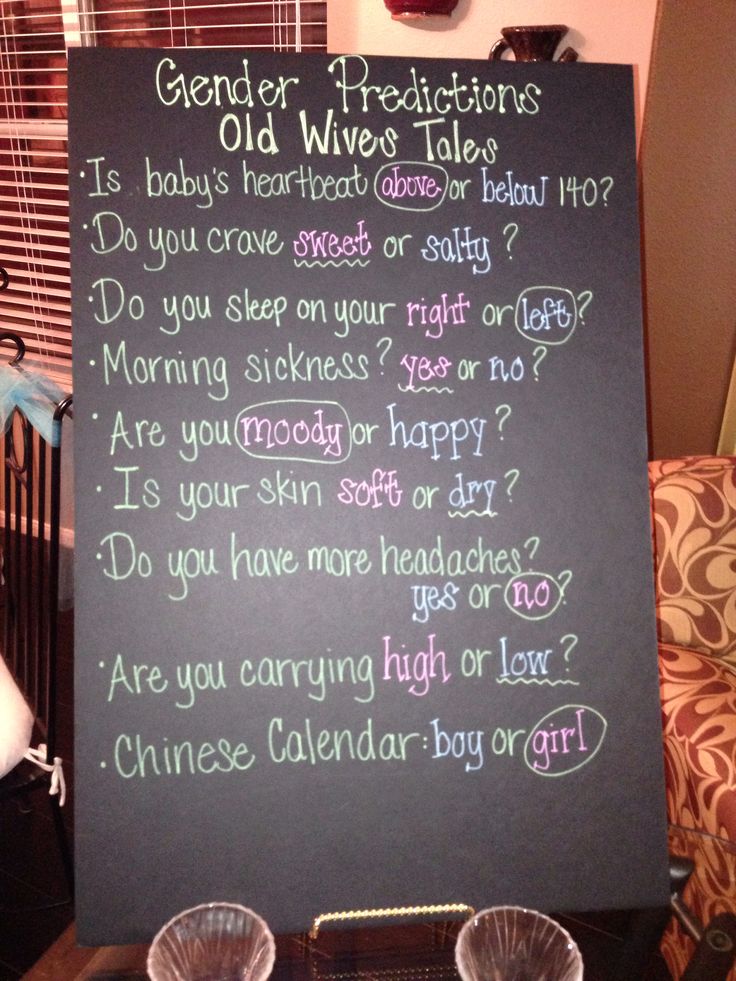 Gender Predictions
Old Wives Tales
·Is baby's heartbeat above or below 140?
·Do you crave sweet or salty?
·Do you sleep on your right or left?
·Morning sickness? yes or no?
·Are you moody or happy?
·Is your skin soft or dry?
·Do you have more headaches?
yes or no?
·Are you carrying high or low?
·Chinese Calendar: boy or girl